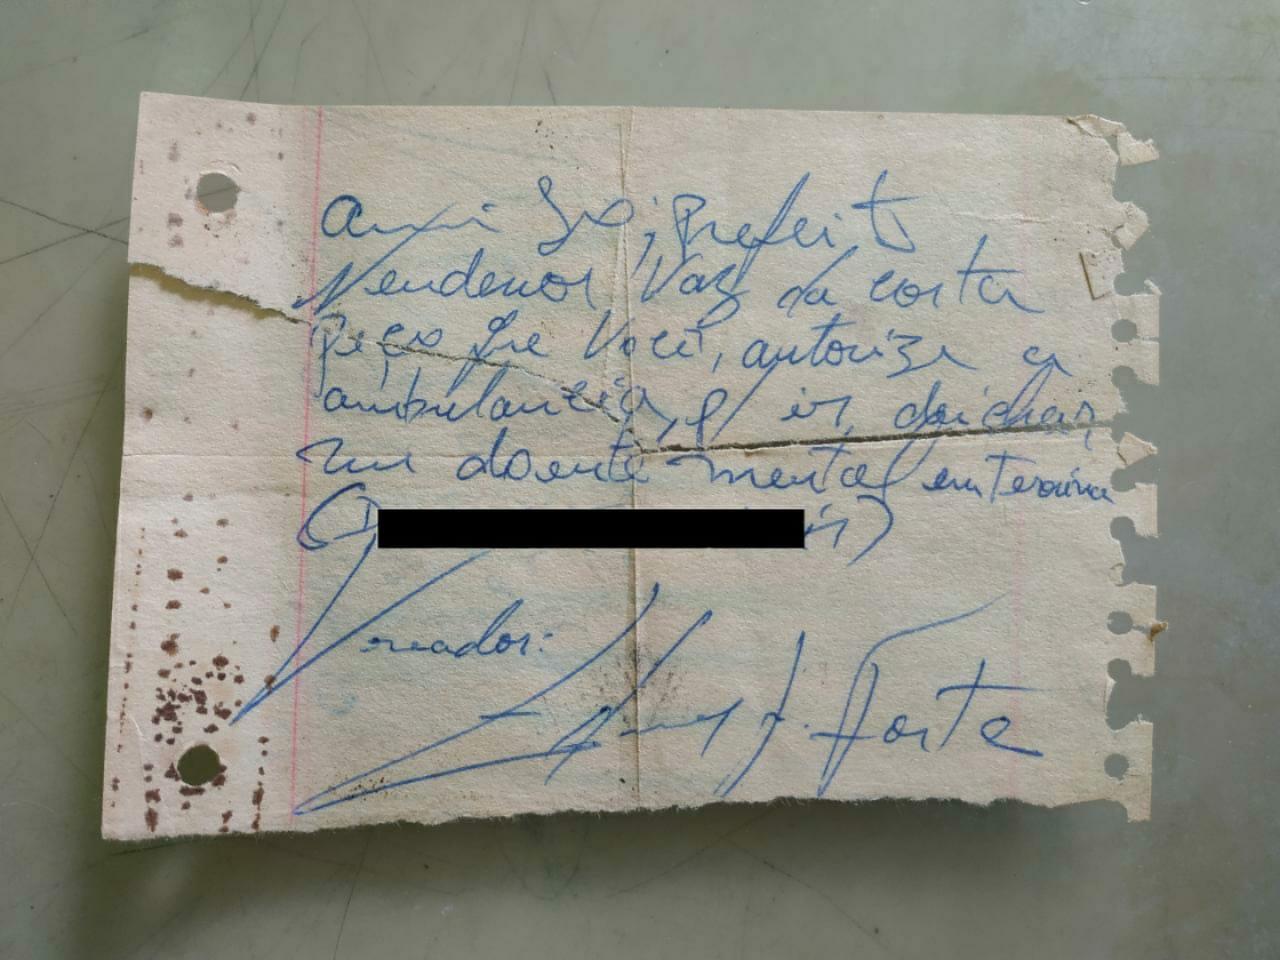 Amigo, Prefeito
Vaz da costa
Peço que Você, autorize a
ambulancia, p/ ir, deichar,
um doente mental em Teresina
Vereador:
J. Forte